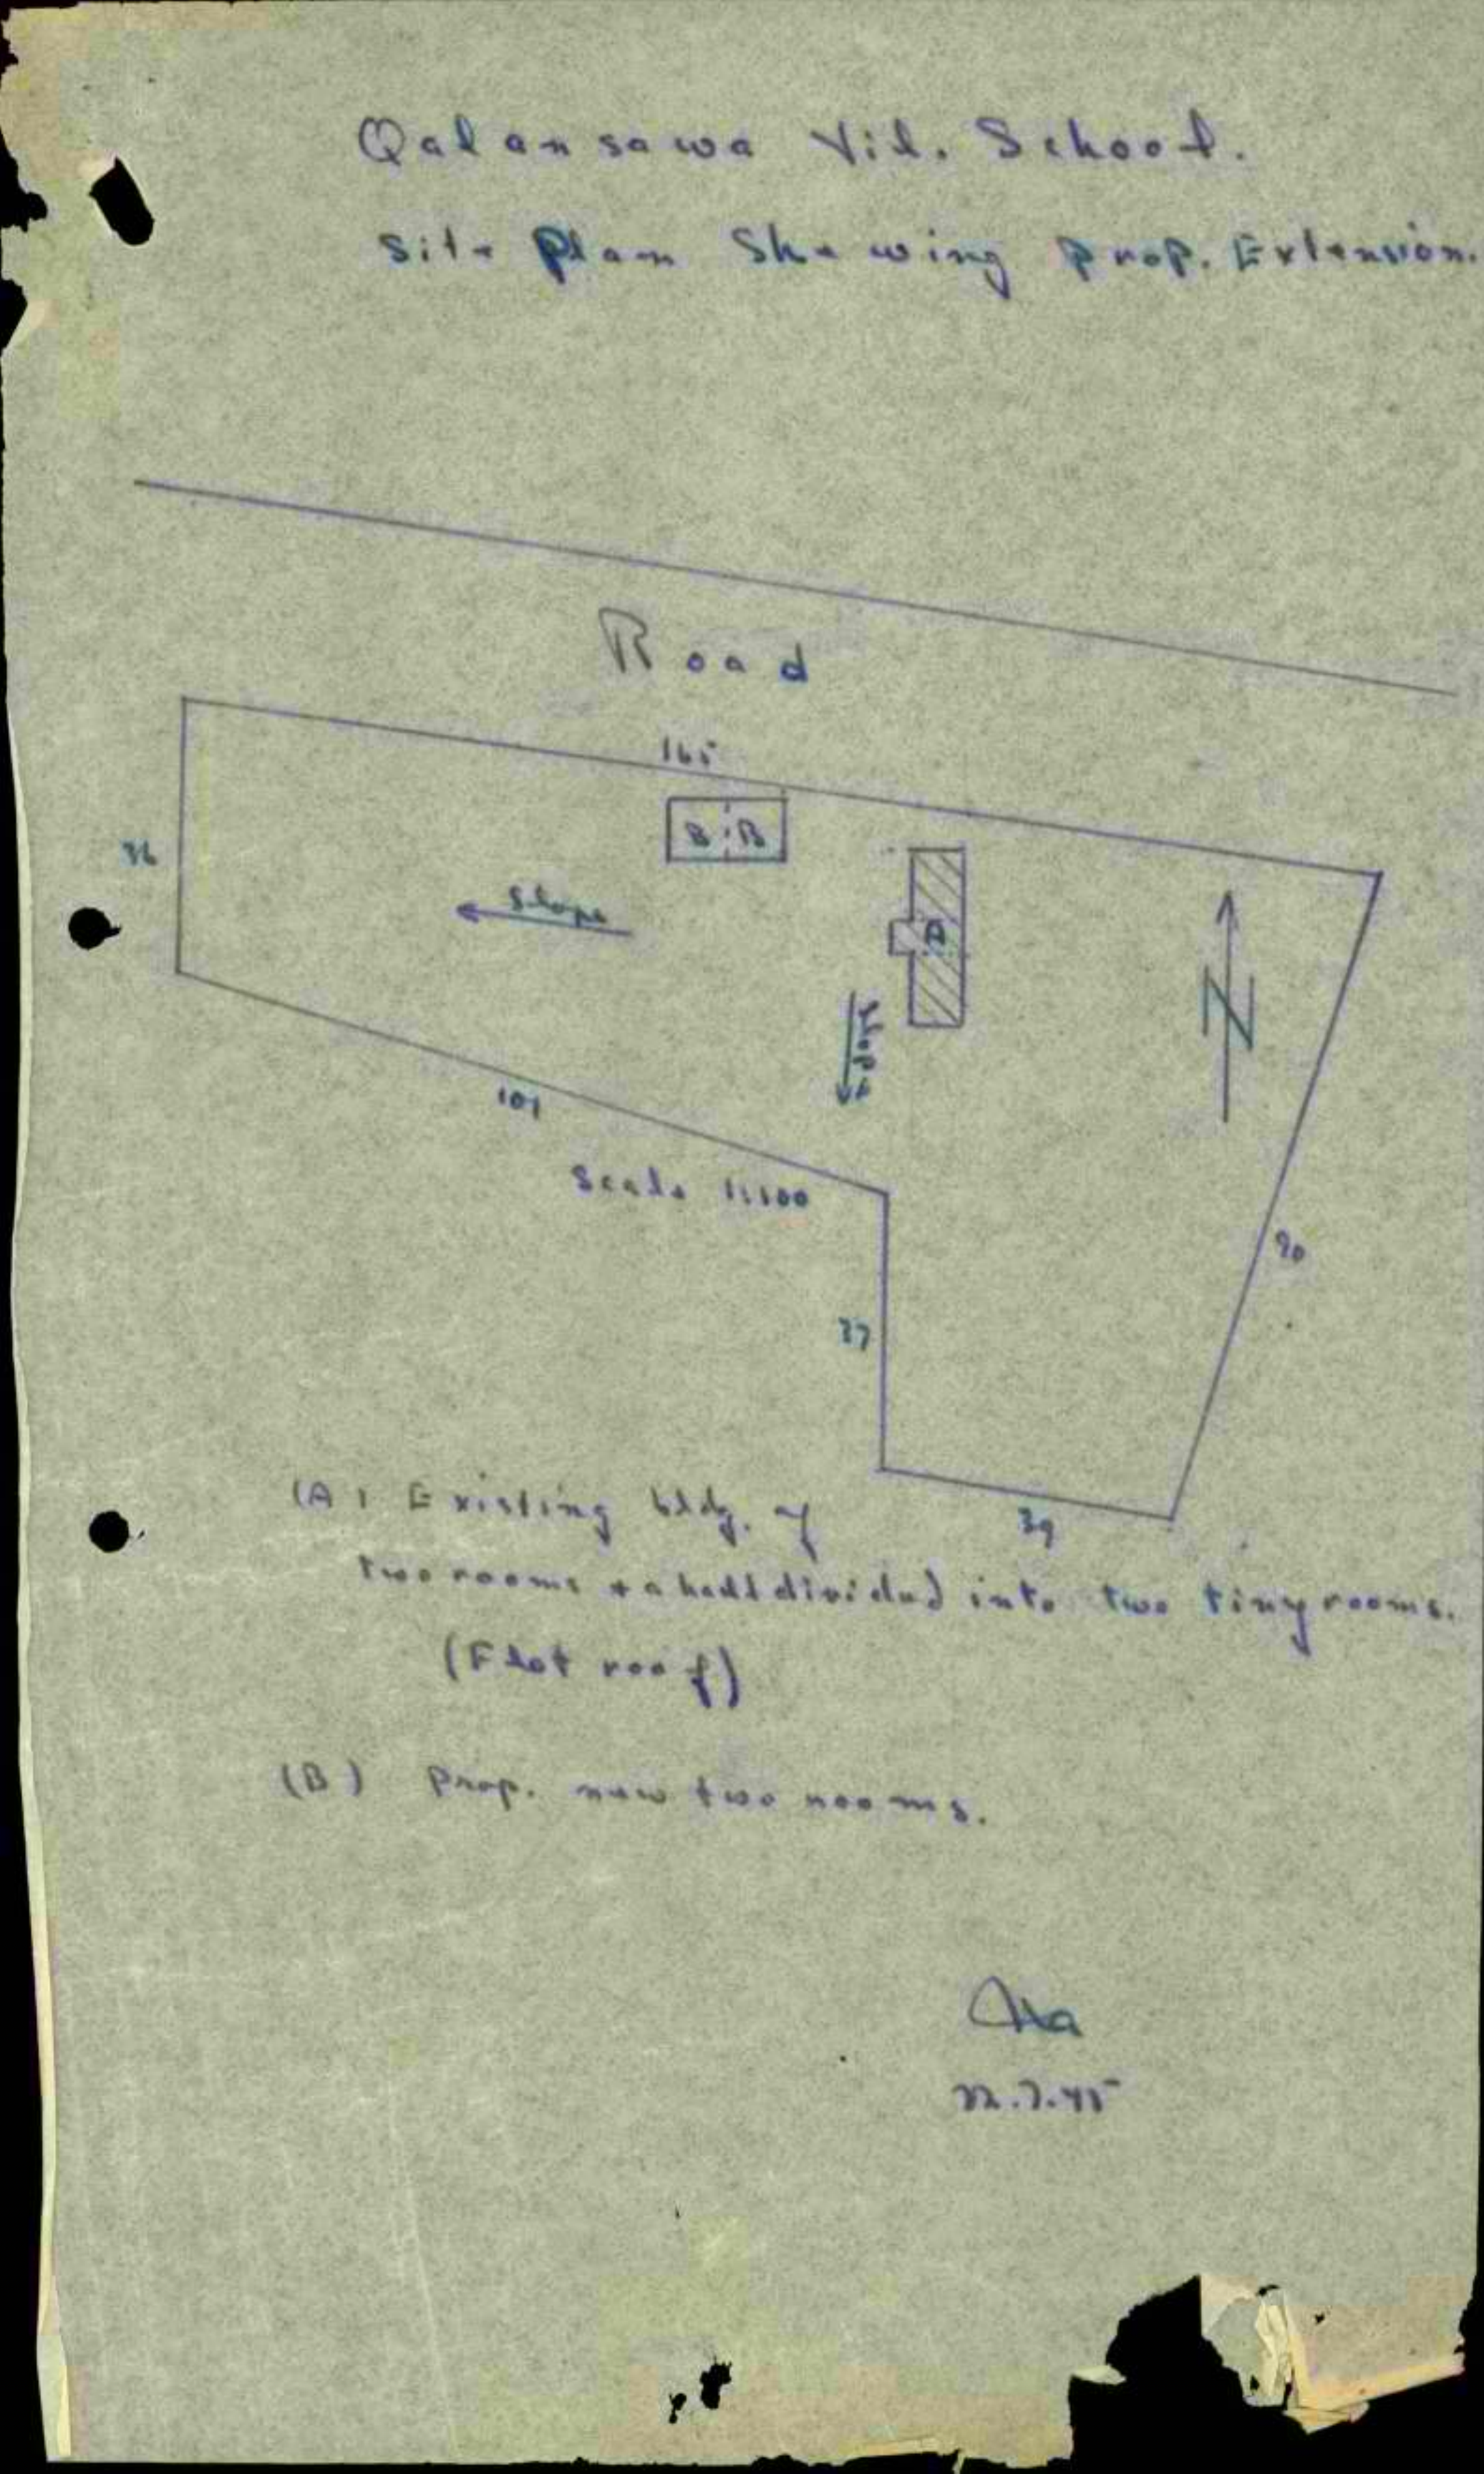 Qalansawa Vil. School.
Site Plan Shewing Prop. Extension.
Road
165
36
B B
A
Slope
Slope
N
101
Scale 1:100
90
37
39
(A) Existing bldg. of
two rooms + a hall divided into two tiny rooms.
(Flat roof)
(B) Prop. new two rooms.
22.7.45